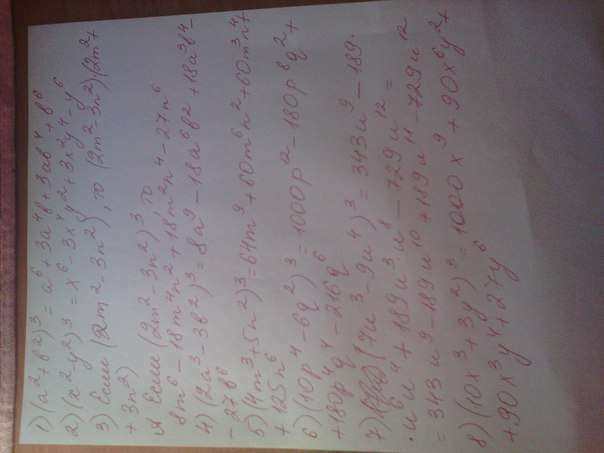 1) (a²+b²)³ = a⁶+3a⁴b²+3ab⁴+b⁶
2) (x²-y²)³ = x⁶-3x⁴y²+3x²y⁴-y⁶
3) Если (2m²-3n²), то (2m²-3n²)(2m²+
+3n²)
А Если (2m²-3n²)³ то
8m⁶-18m⁴n²+18m²n⁴-27n⁶
4) (2a³-3b²)³=8a⁹-18a⁶b²+18a³b⁴-
-27b⁶
5) (4m³+5n²)³=64m⁹+60m⁶n²+60m³n⁴+
+125n⁶
6) (10p⁴-6q²)³=1000p¹²-180p⁸q²+
+180p⁴q⁴-216q⁶
7) (7u³-9u⁴)³=343u⁹-189·
·u⁶u⁴+189u³u⁸-729u¹²=
=343u⁹-189u¹⁰+189u¹¹-729u¹²
8) (10x³+3y²)³=1000x⁹+90x⁶y²+
+90x³y⁴+27y⁶